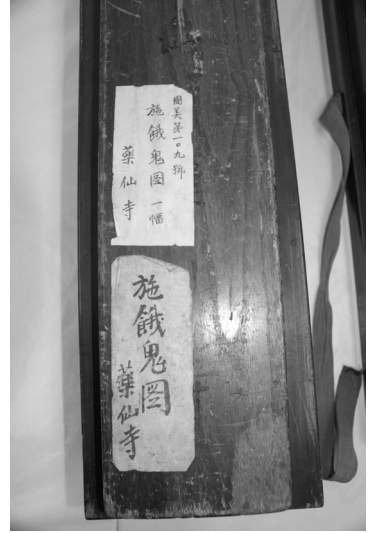 國美第一〇九號
施餓鬼圖一幅
藥仙寺
施餓鬼圖
藥仙寺